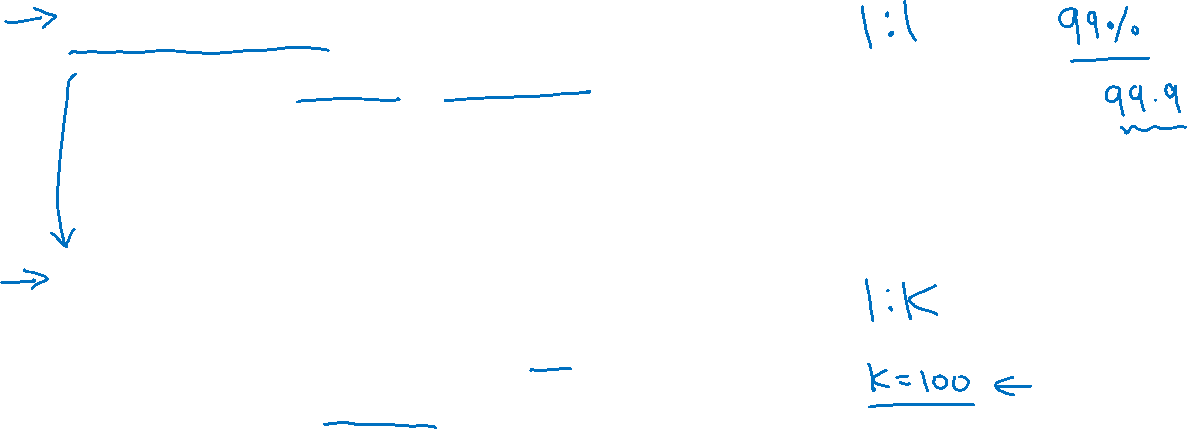 1:1 99%
99.9
1:K
K=100